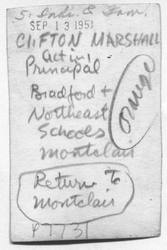 S. Ind. E. Fam.
SEP 13 1951
CLIFTON MARSHALL
acting
Principal
Bradford +
Northeast
Schools
Montclair
orange
Return to
Montclair